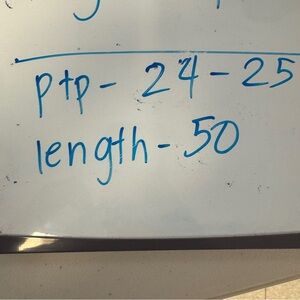 ptp - 24 - 25
length - 50